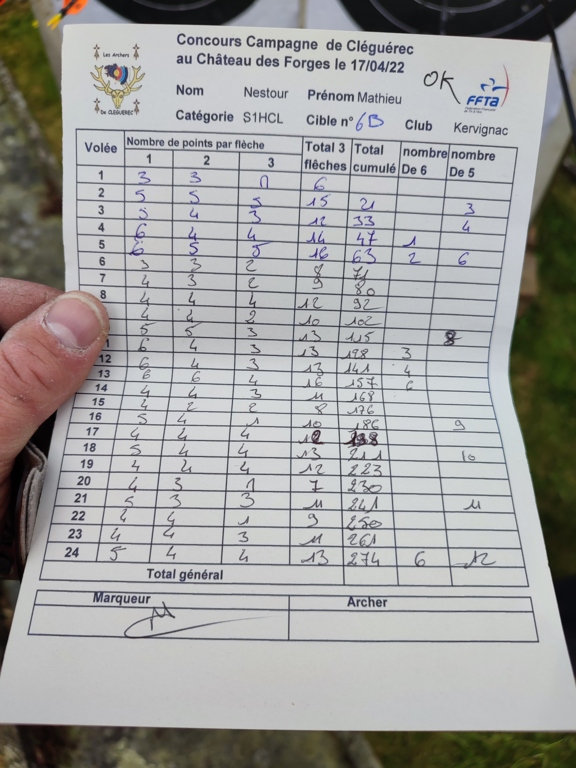 Les Archers
De CLÉGUÉREC
Concours Campagne de Cléguérec
au Château des Forges le 17/04/22
OK
FFTA
Nom Nestour Prénom Mathieu
Catégorie S1HCL Cible n° 6B Club Kervignac
Volée Nombre de points par flèche Total 3 flèches Total cumulé nombre De 6 nombre De 5
1 2 3
1 3 3 0 6
2 5 5 5 15 21 3
3 5 4 3 12 33 4
4 6 4 4 14 47 1
5 6 5 5 16 63 2 6
6 3 3 2 8 71
7 4 3 2 9 80
8 4 4 4 12 92
4 4 2 10 102
5 5 3 13 115 8
1 6 4 3 13 128 3
12 6 4 3 13 141 4
13 6 6 4 16 157 6
14 4 4 3 11 168
15 4 2 2 8 176
16 5 4 1 10 186 9
17 4 4 4 12 198
18 5 4 4 13 211 10
19 4 4 4 12 223
20 4 3 0 7 230
21 5 3 3 11 241 11
22 4 4 1 9 250
23 4 4 3 11 261
24 5 4 4 13 274 6 12
Total général
Marqueur Archer